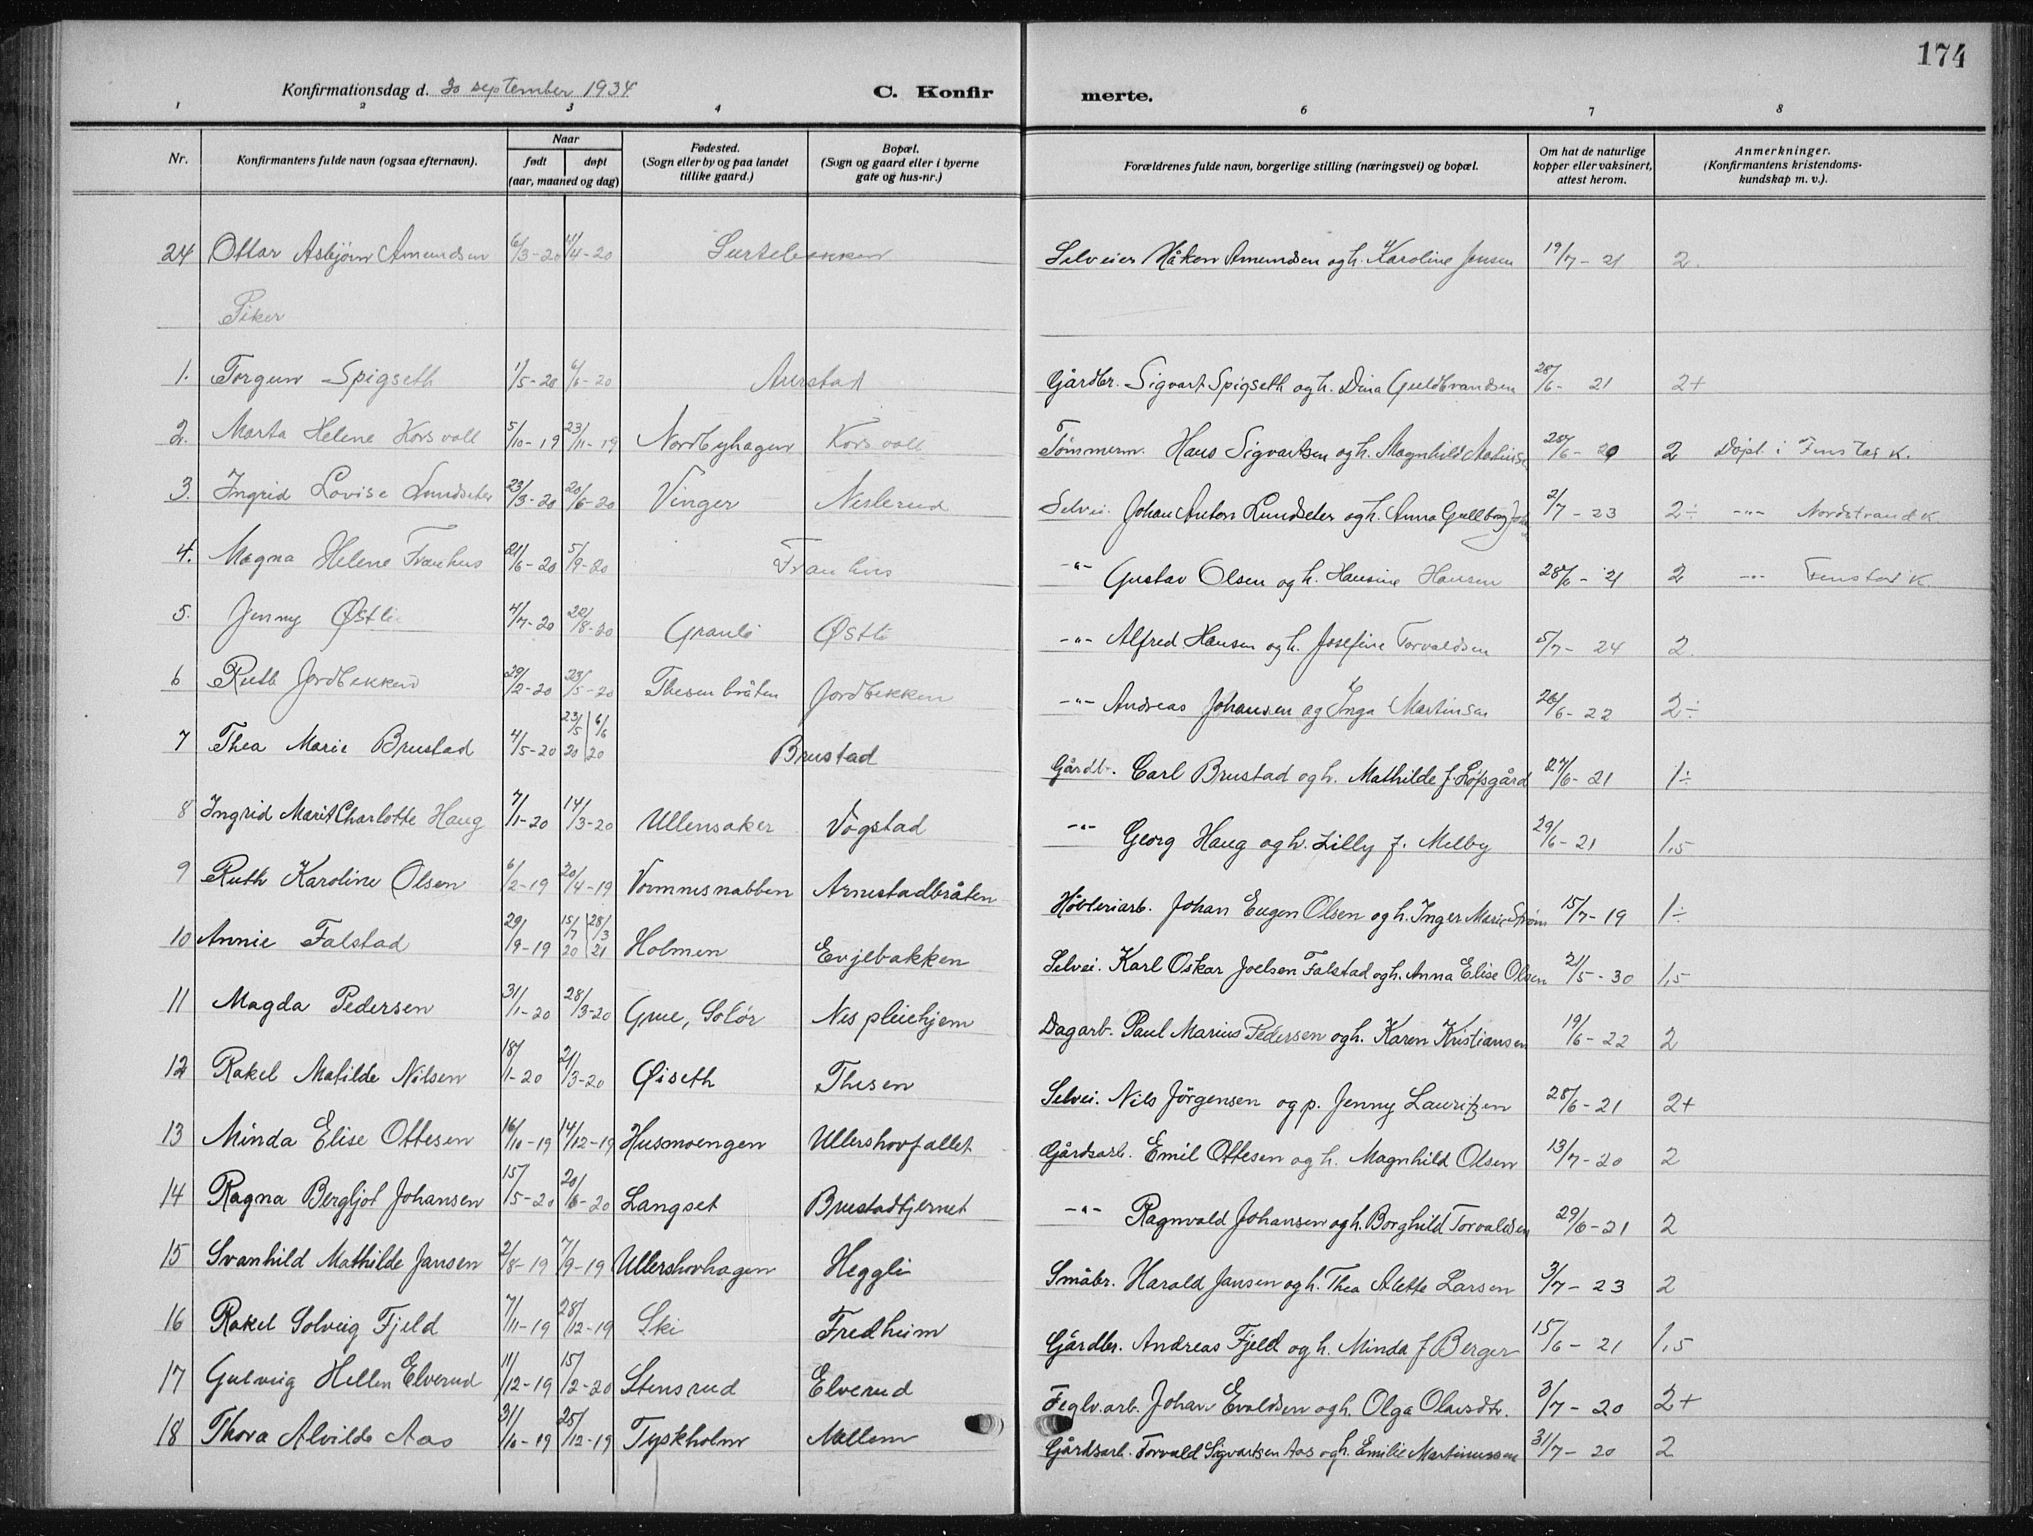 174
Konfirmationsdag d. 30 september 1934 C. Konfir merte.
1 2 3 4 6 7 8
Nr. Konfirmantens fulde navn (ogsaa efternavn). Naar født døpt (aar, maaned og dag) Fødested. (Sogn eller by og paa landet tillike gaard.) Bopæl. (Sogn og gaard eller i byerne gate og hus-nr.) Forældrenes fulde navn, borgerlige stilling (næringsvei) og bopæl. Om hat de naturlige kopper eller vaksinert, attest herom. Anmerkninger. (Konfirmantens kristendoms-kundskap m. v.).
24 Ottar Asbjørn Amundsen 6/3-20 4/4-20 Surtebakken Selveier Håkon Amundsen og h. Karoline Jensen 19/7-21 2.
Piker
1. Torgun Spigseth 1/5-20 6/6-20 Aurstad Gårdbr. Sigvart Spigseth og h. Dina Guldbrandsen 28/6-21 2+
2. Marta Helene Korsvoll 5/10-19 23/11-19 Nordbyhagen Korsvoll Tømmerm. Hans Sigvartsen og h. Magnhild 28/6-20 2 Døpt i Fenstad K.
3. Ingrid Lovise Lundseter 23/3-20 20/6-20 Vinger Neslerud Selvei. Johan Anton Lundseter og h. Anna Gullborg 2/7-23 2÷ -"- Nordstrand K
4. Magna Helene Tranhus 21/6-20 5/9-20 Tranhus -"- Gustav Olsen og h. Hansine Hansen 28/6-21 2 -"- Fenstad K
5. Jenny Østli 4/7-20 22/8-20 Granli Østli -"- Alfred Hansen og h. Josefine Torvaldsen 5/7-24 2.
6 Ruth Jordbekken 29/2-20 23/5-20 Thesenbråten Jordbekken -"- Andreas Johansen og Inga Martinsen 26/6-22 2÷
7 Thea Marie Brustad 4/5-20 23/5 20 | 6/6 20 Brustad Gårdbr. Carl Brustad og h. Mathilde f. Løpsgård 27/6-21 1÷
8 Ingrid Marit Charlotte Haug 7/1-20 14/3-20 Ullensaker Vogstad -"- Georg Haug og h. Lilly f. Melby 29/6-21 1,5
9 Ruth Karoline Olsen 6/2-19 20/4-19 Vormnesnabben Arnestadbråten Høvleriarb. Johan Eugen Olsen og h. Inger Marie Strøm 15/7-19 1÷
10 Annie Falstad 29/9-19 15/7 20 | 28/3 21 Holmen Evjebakken Selvei. Karl Oskar Joelsen Falstad og h. Anna Elise Olsen 21/5-30 1,5
11 Magda Pedersen 31/1-20 28/3-20 Grue, Solør Nes pleiehjem Dagarb. Paul Marius Pedersen og h. Karen Kristiansen 19/6-22 2
12 Rakel Matilde Nilsen 18/1-20 21/3-20 Øiseth Thesen Selvei. Nils Jörgensen og p. Jenny Lauritzen 28/6-21 2+
13 Minda Elise Ottesen 16/10-19 14/12-19 Husmoengen Ullershovfallet Gårdsarb. Emil Ottesen og h. Magnhild Olsen 13/7-20 2
14 Ragna Bergljot Johansen 15/5-20 20/6-20 Langset Brustadtjernet -"- Ragnvald Johansen og h. Borghild Torvaldsen 29/6-21 2
15 Svanhild Mathilde Jansen 2/8-19 7/9-19 Ullershovhagen Heggli Småbr. Harald Jansen og h. Thea Alette Larsen 3/7-23 2
16 Rakel Solveig Fjeld 7/11-19 28/12-19 Ski Fredheim Gårdbr. Andreas Fjeld og h. Minda f Berger 15/6-21 1,5
17 Gulveig Hellen Elverud 11/12-19 15/2-20 Stensrud Elverud Teglv.arb. Johan Evaldsen og h. Olga Olavsdtr. 3/7-20 2+
18 Thora Alvilde Aas 31/10-19 25/12-19 Tyskholm Mellem Gårdsarb. Torvald Sigvartsen Aas og h. Emilie Martinussen 31/7-20 2